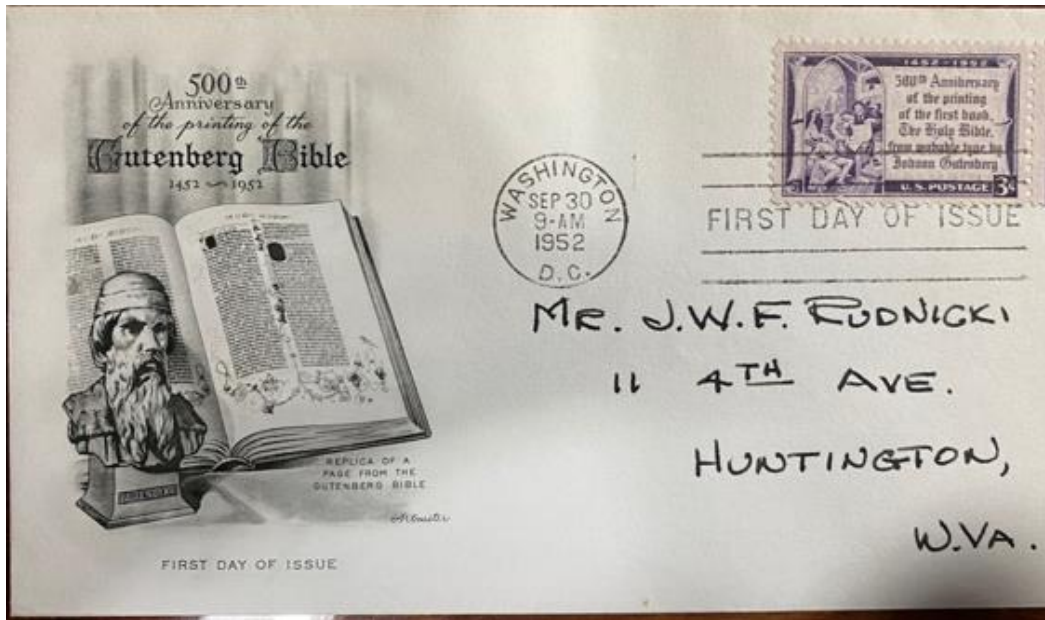 500th
Anniversary
of the printing of the
Gutenberg Bible
1452 ~ 1952
REPLICA OF A
PAGE FROM THE
GUTENBERG BIBLE
Artmaster
FIRST DAY OF ISSUE
GUTENBERG
WASHINGTON
SEP 30
9-AM
1952
D.C.
1452-1952
500th Anniversary
of the printing
of the first book,
The Holy Bible,
from movable type, by
Johann Gutenberg
U.S. POSTAGE 3¢
FIRST DAY OF ISSUE
MR. J.W.F. RUDNICKI
11 4TH AVE.
HUNTINGTON,
W.VA.